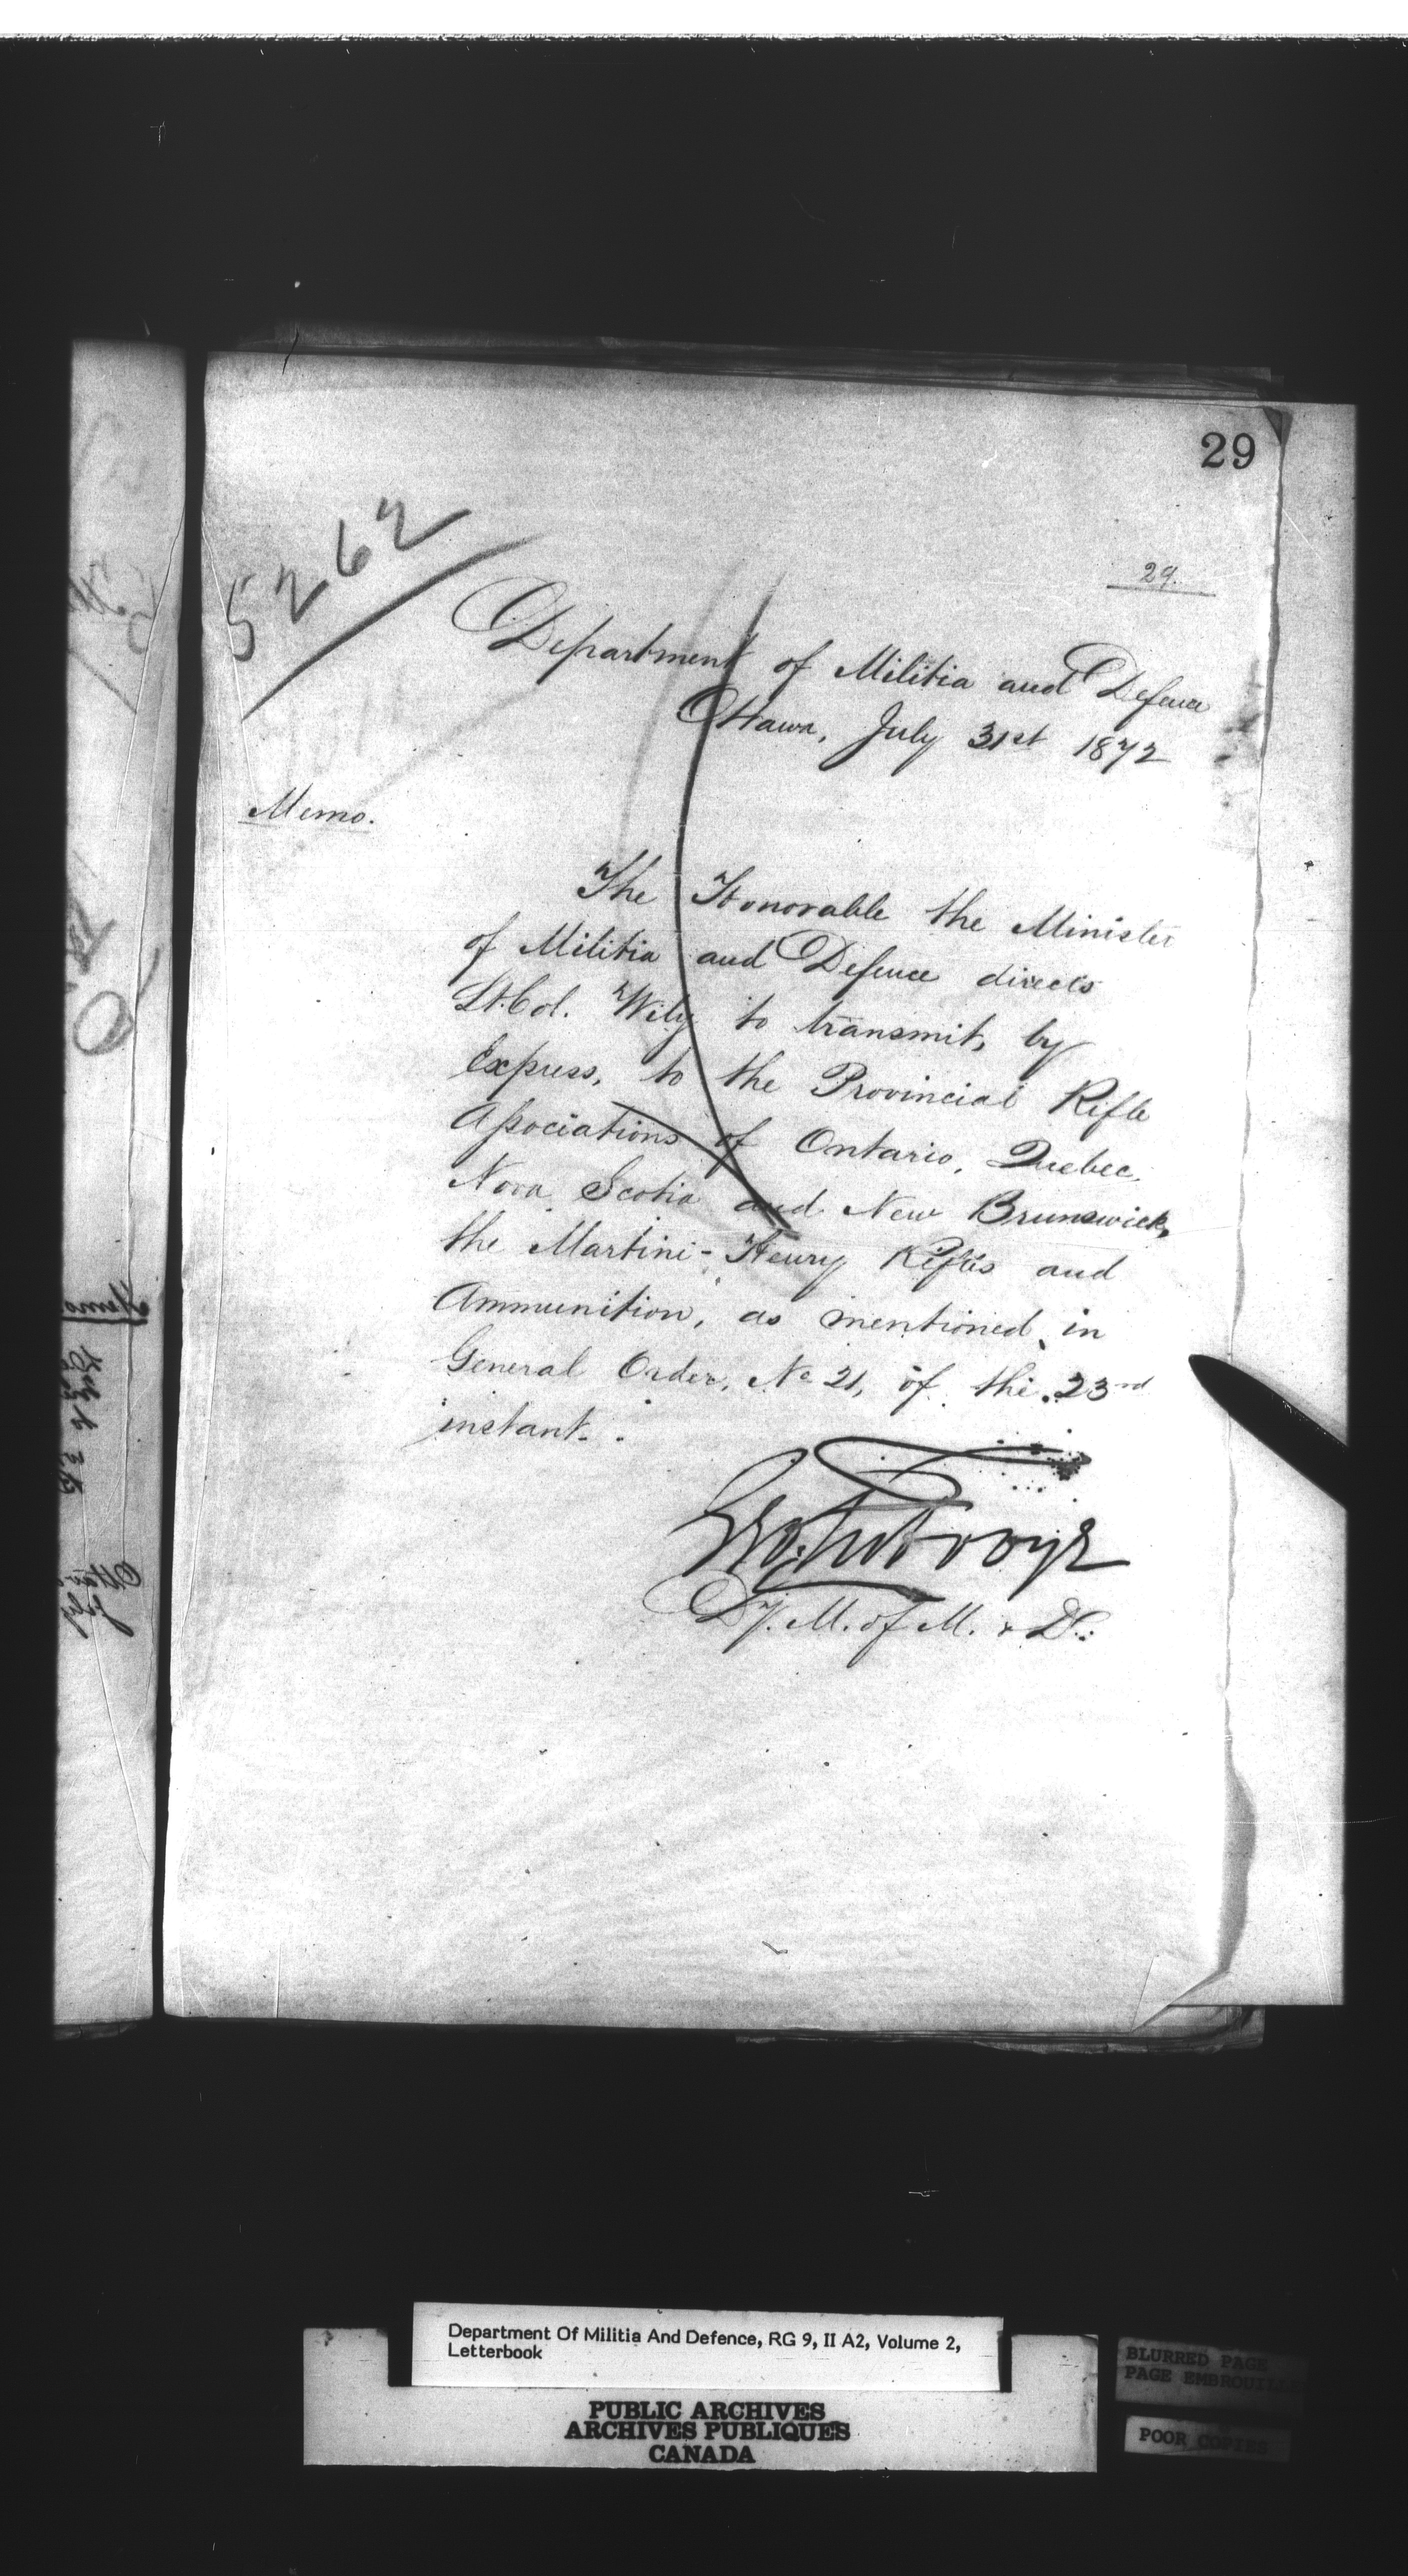 29
29.
5262
Department of Militia and Defence
Ottawa, July 31st 1872
Memo.
The Honorable the Minister
of Militia and Defence directs
Lt. Col. Wily to transmit, by
Express, to the Provincial Rifle
Associations of Ontario, Quebec,
Nova Scotia and New Brunswick,
the Martini-Henry Rifles and
Ammunition, as mentioned in
General Order, No 21, of the 23rd
instant.
Geo. Futvoye
Dy. M. of M. & D.
Department Of Militia And Defence, RG 9, II A2, Volume 2,
Letterbook
PUBLIC ARCHIVES
ARCHIVES PUBLIQUES
CANADA
BLURRED PAGE
PAGE EMBROUILLE
POOR COPIES